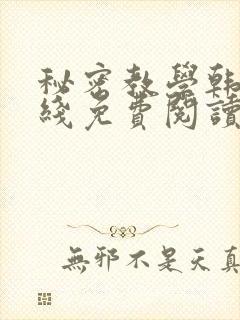 秘密教學韩
綫免費閱讀
無邪不是天真